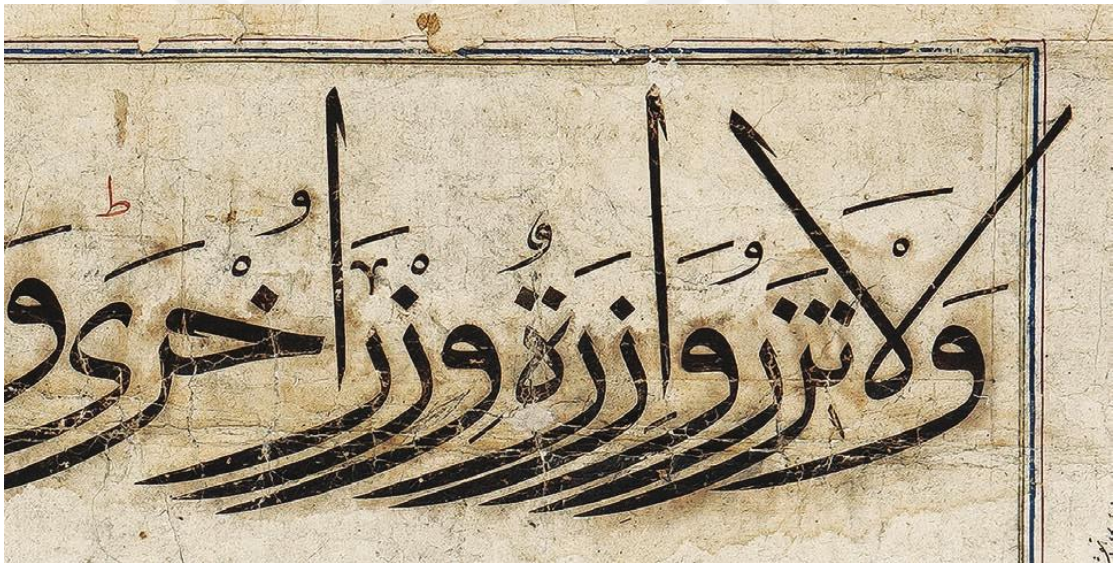 وَلَا تَزِرُ وَازِرَةٌ وِزْرَ أُخْرَى ط وَ